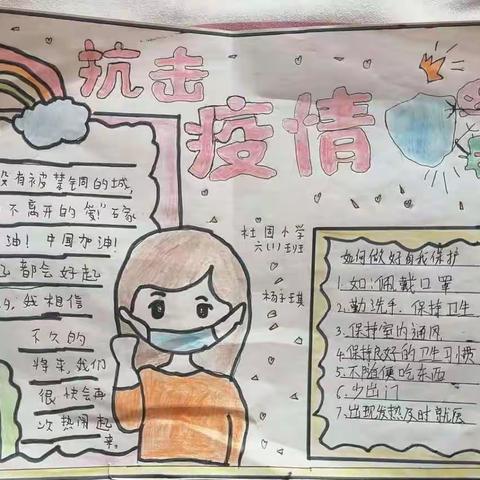 抗击
疫情
没有被禁锢的城,
不离开的
油！中国加油！
都会好起
的,我相信
不久的
将来,我们
很快会再
次热闹起
来。
杜固小学
六(1)班
杨子琪
如何做好自我保护
1.如:佩戴口罩
2.勤洗手、保持卫生
3.保持室内通风
4.保持良好的卫生习惯
5.不随便吃东西
6.少出门
7.出现发热及时就医